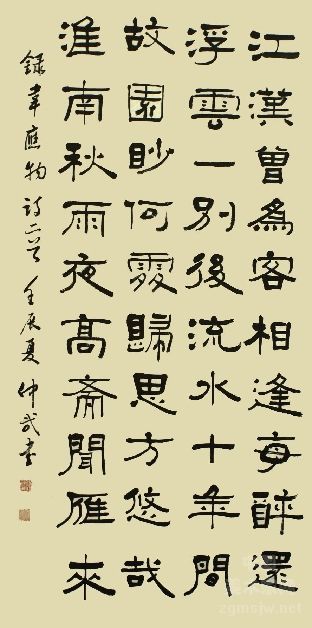 江漢曾爲客相逢每醉還
浮雲一別後流水十年間
故園眇何處歸思方悠哉
淮南秋雨夜高齋聞雁來
錄韋應物詩二首 壬辰夏 仲武書
zgmsjw.net